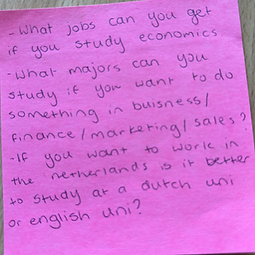 -What jobs can you get
if you study economics
-What majors can you
study if you want to do
something in buisness/
finance/marketing/sales?
-If you want to work in
the netherlands is it better
to study at a dutch uni
or english uni?